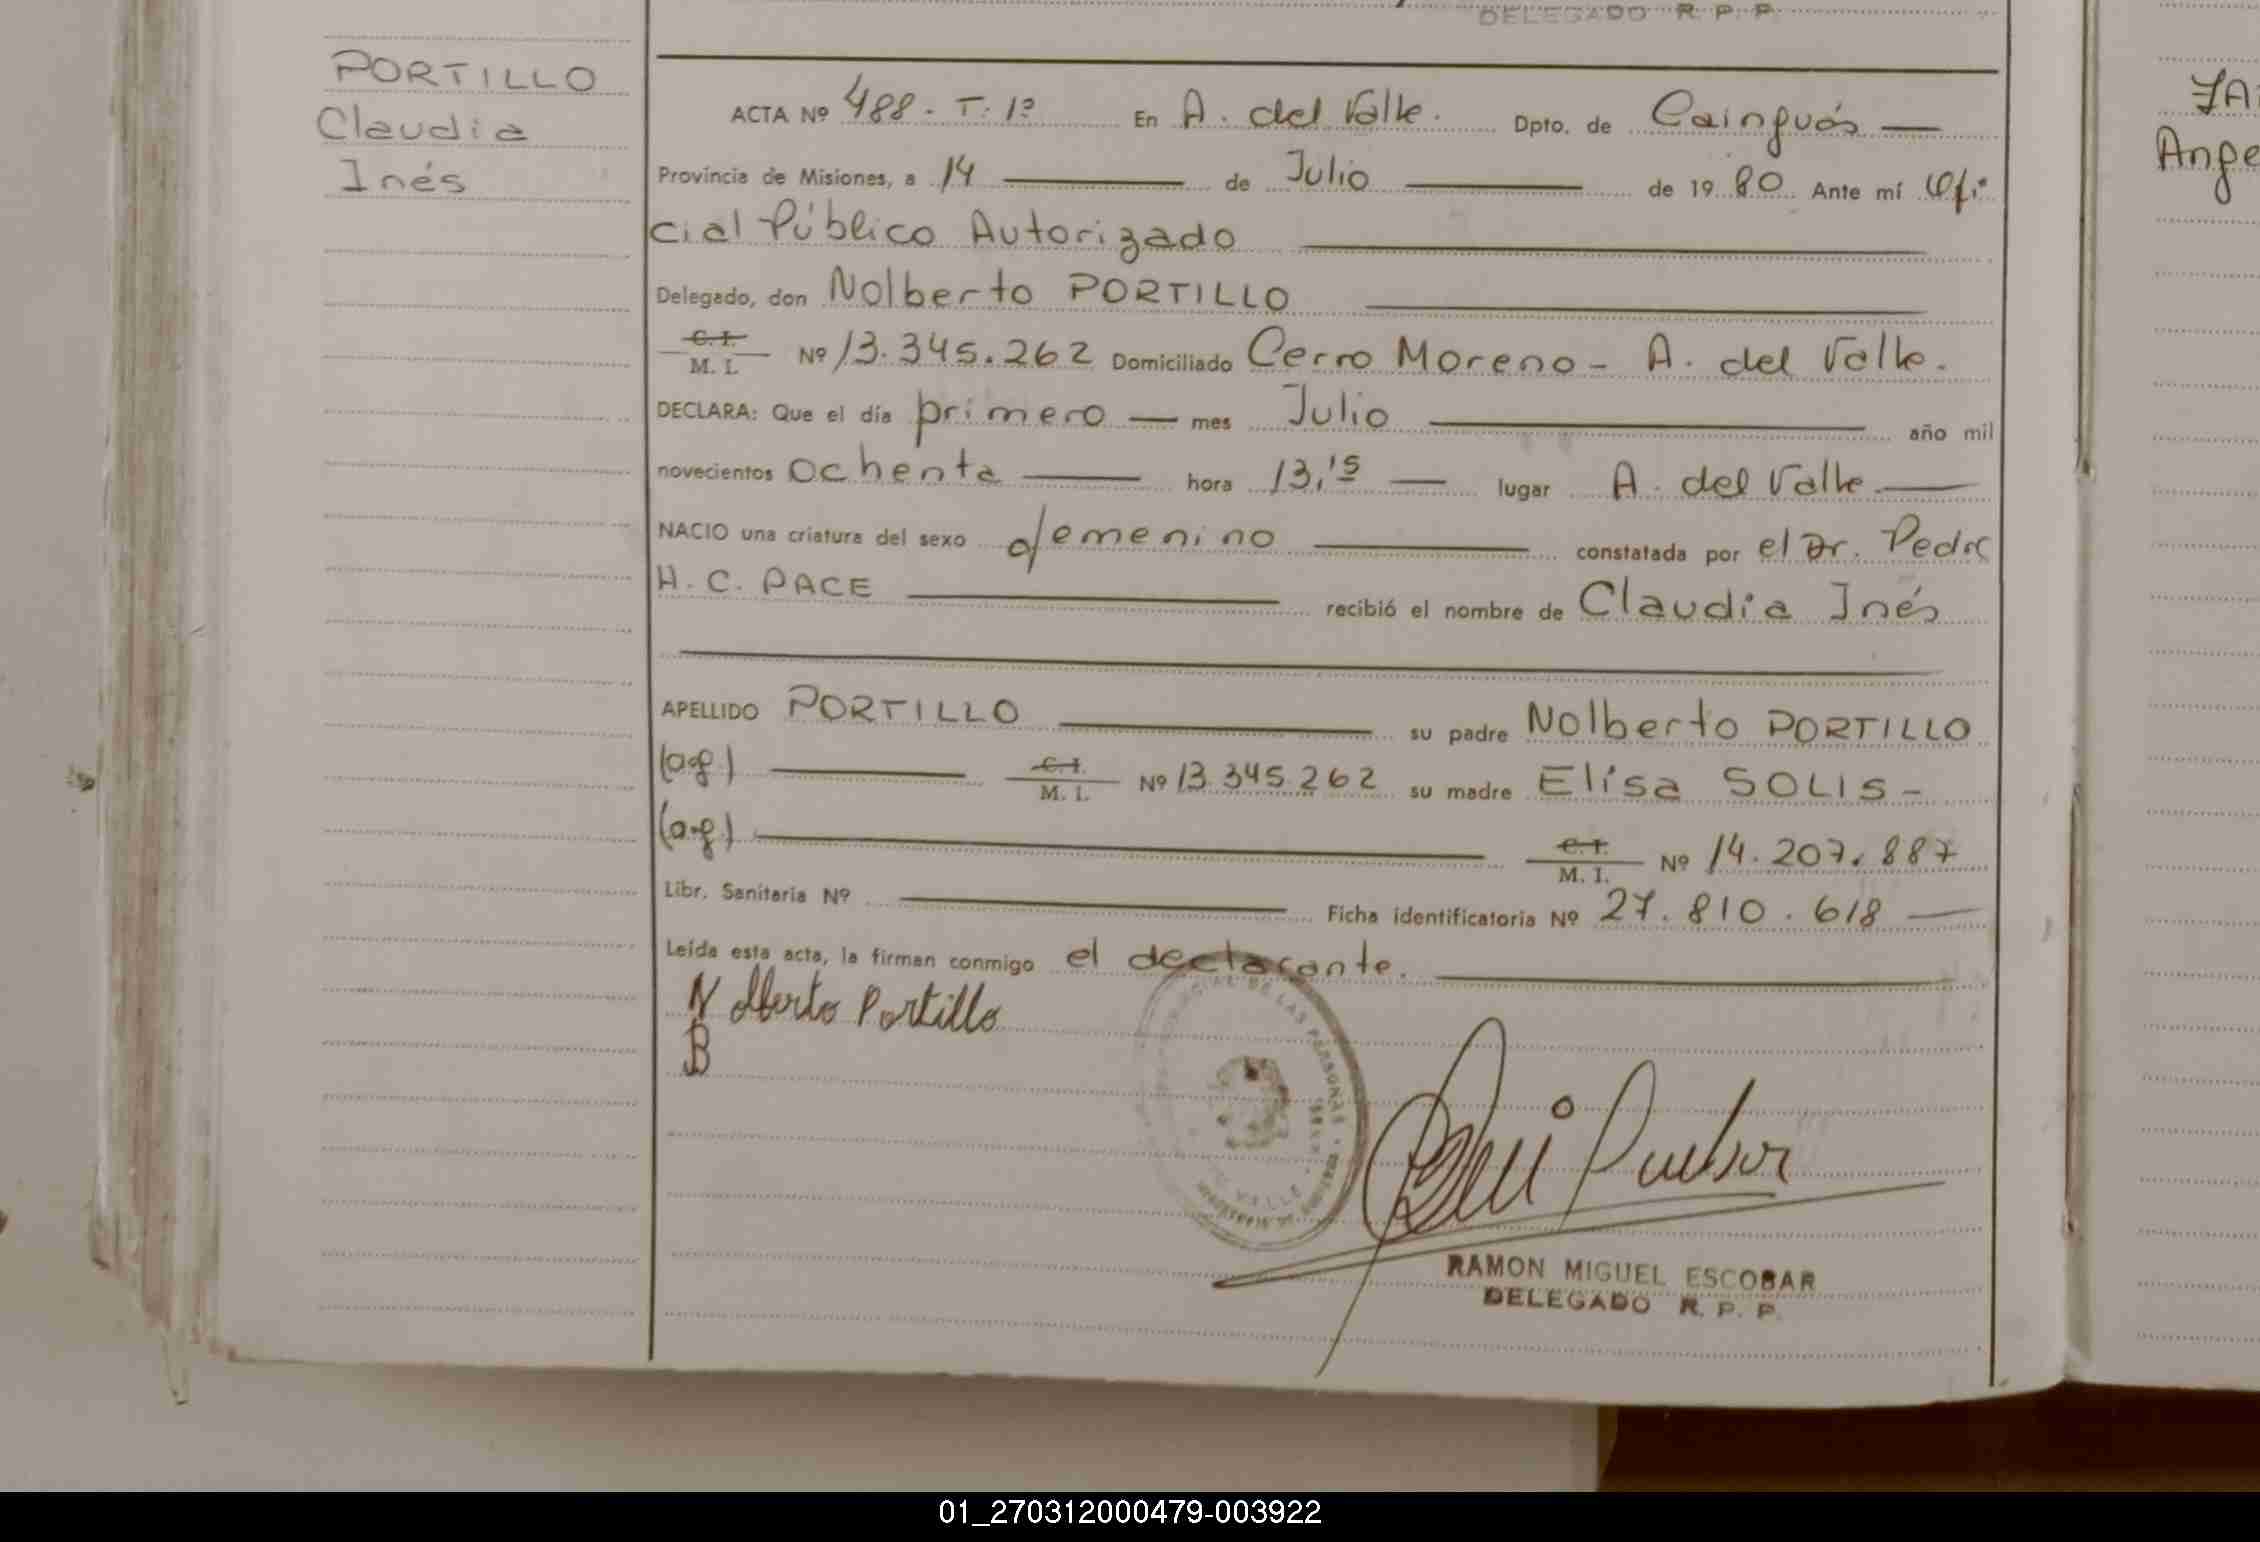 DELEGADO R. P. P.
PORTILLO
Claudia
Inés
ACTA Nº 488 - T: 1º En A. del Valle. Dpto. de Cainguás —
Provincia de Misiones, a 14 — de Julio — de 1980 Ante mí Ofi-
cial Público Autorizado —
Delegado, don Nolberto PORTILLO —
C.I. M. I. Nº 13.345.262 Domiciliado Cerro Moreno - A. del Valle.
DECLARA: Que el día primero — mes Julio — año mil
novecientos ochenta — hora 13,15 — lugar A. del Valle —
NACIO una criatura del sexo femenino — constatada por el Dr. Pedro
H. C. PACE — recibió el nombre de Claudia Inés
APELLIDO PORTILLO — su padre Nolberto PORTILLO
(arg.) — C.I. M. I. Nº 13.345.262 su madre Elisa SOLIS -
(arg.) — C.I. M. I. Nº 14.207.887
Libr. Sanitaria Nº — Ficha identificatoria Nº 27.810.618 —
Leída esta acta, la firman conmigo el declarante. —
Nolberto Portillo
B
DE LAS PERSONAS
VALLE
RAMON MIGUEL ESCOBAR
DELEGADO R. P. P.
JA
Ange
01_270312000479-003922